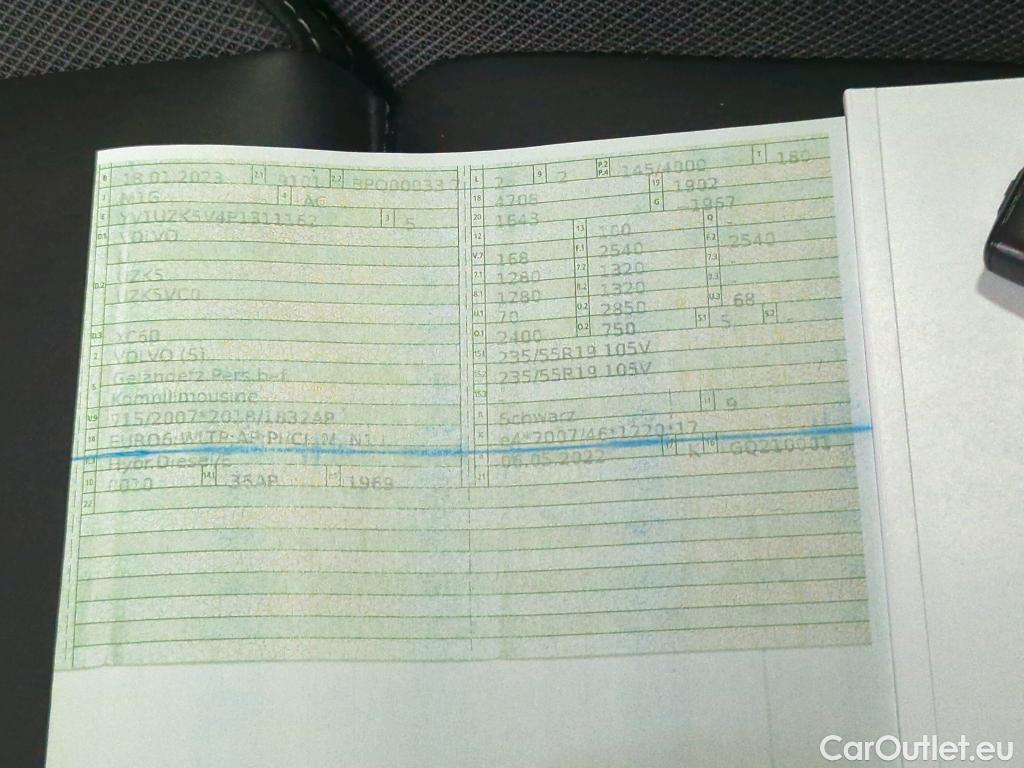 B 18.01.2023 2.1 9101 2.2
J M1G 4 AG
E YV1UZK5V4P1311162 3 5
D.1 VOLVO
D.2 UZK5
UZK5VC0
D.3 XC60
2 VOLVO (S)
5 Geländefz.Pers.bef.
Kombilimousine
V.9 715/2007*2018/1832AP
14 EURO6
Hybr.Diesel/E
10 0010 14.1 36AP P.1 1969
22
L 2 9 2 P.2 P.4 145/4000 T 180
18 4708 19 1902
20 1643 G 1967
12 - 13 100 Q -
V.7 168 F.1 2540 F.2 2540
7.1 1280 7.2 1320 7.3 -
8.1 1280 8.2 1320 8.3 -
U.1 70 U.2 2850 U.3 68
O.1 2400 O.2 750 S.1 5 S.2 -
15.1 235/55R19 105V
15.2 235/55R19 105V
15.3
R Schwarz 11 9
K e4*2007/46*1220*17
6 06.05.2022 17 K 16
21
CarOutlet.eu